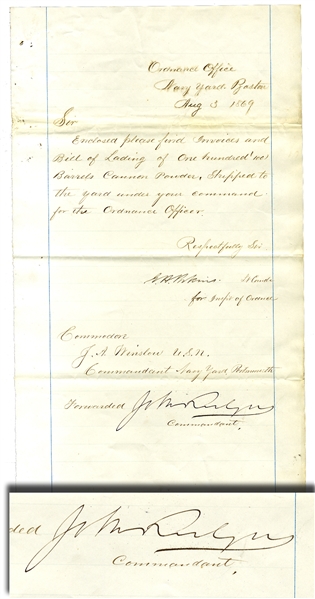 Ordnance Office
Navy Yard, Boston
Aug 3 1869
Sir
Enclosed please find Invoices and
Bill of Lading of One hundred
Barrels Cannon Powder, Shipped to
the yard under your command
for the Ordnance Officer.
Respectfully Sir
for Insp of Ordnce
Commodore
J. A. Winslow U.S.N.
Commandant Navy Yard, Portsmouth
Forwarded John Rodgers
Commandant.
ded John Rodgers
Commandant.